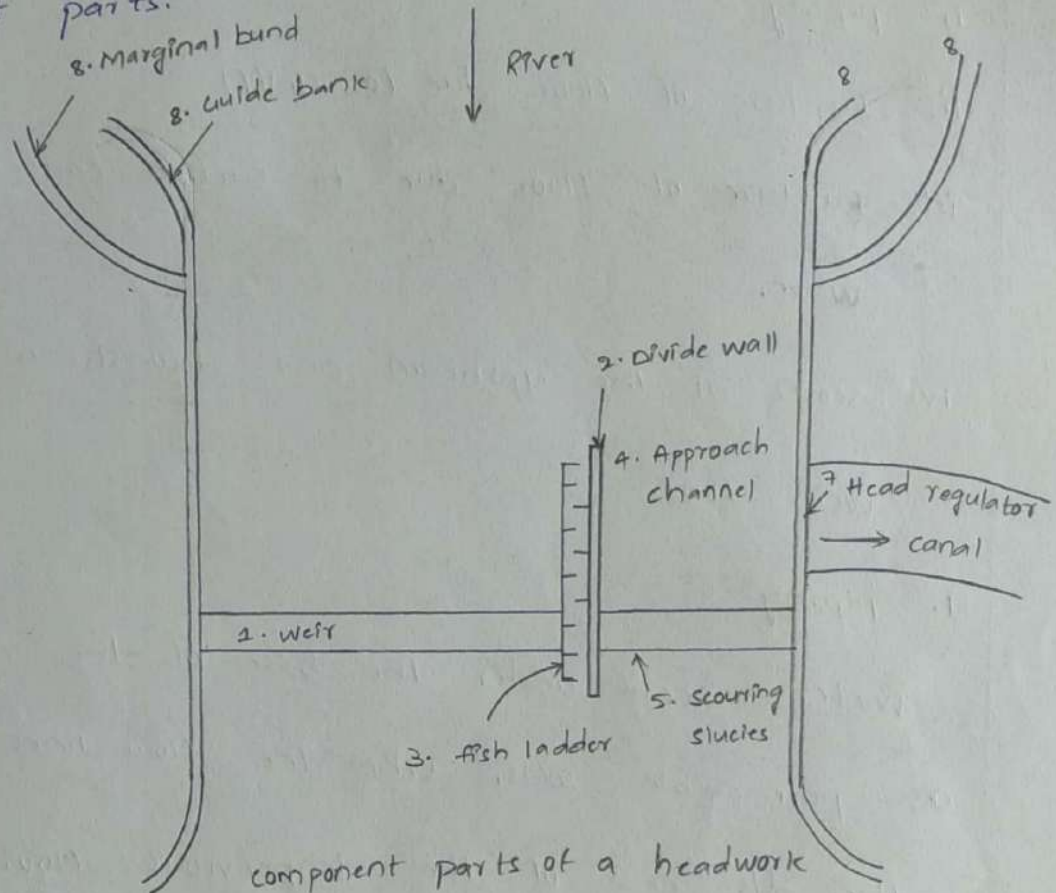 parts.
8. Marginal bund
8. Guide bank
River
8
8
2. Divide wall
4. Approach
channel
7 Head regulator
canal
1. weir
5. scouring
slucies
3. fish ladder
component parts of a headwork